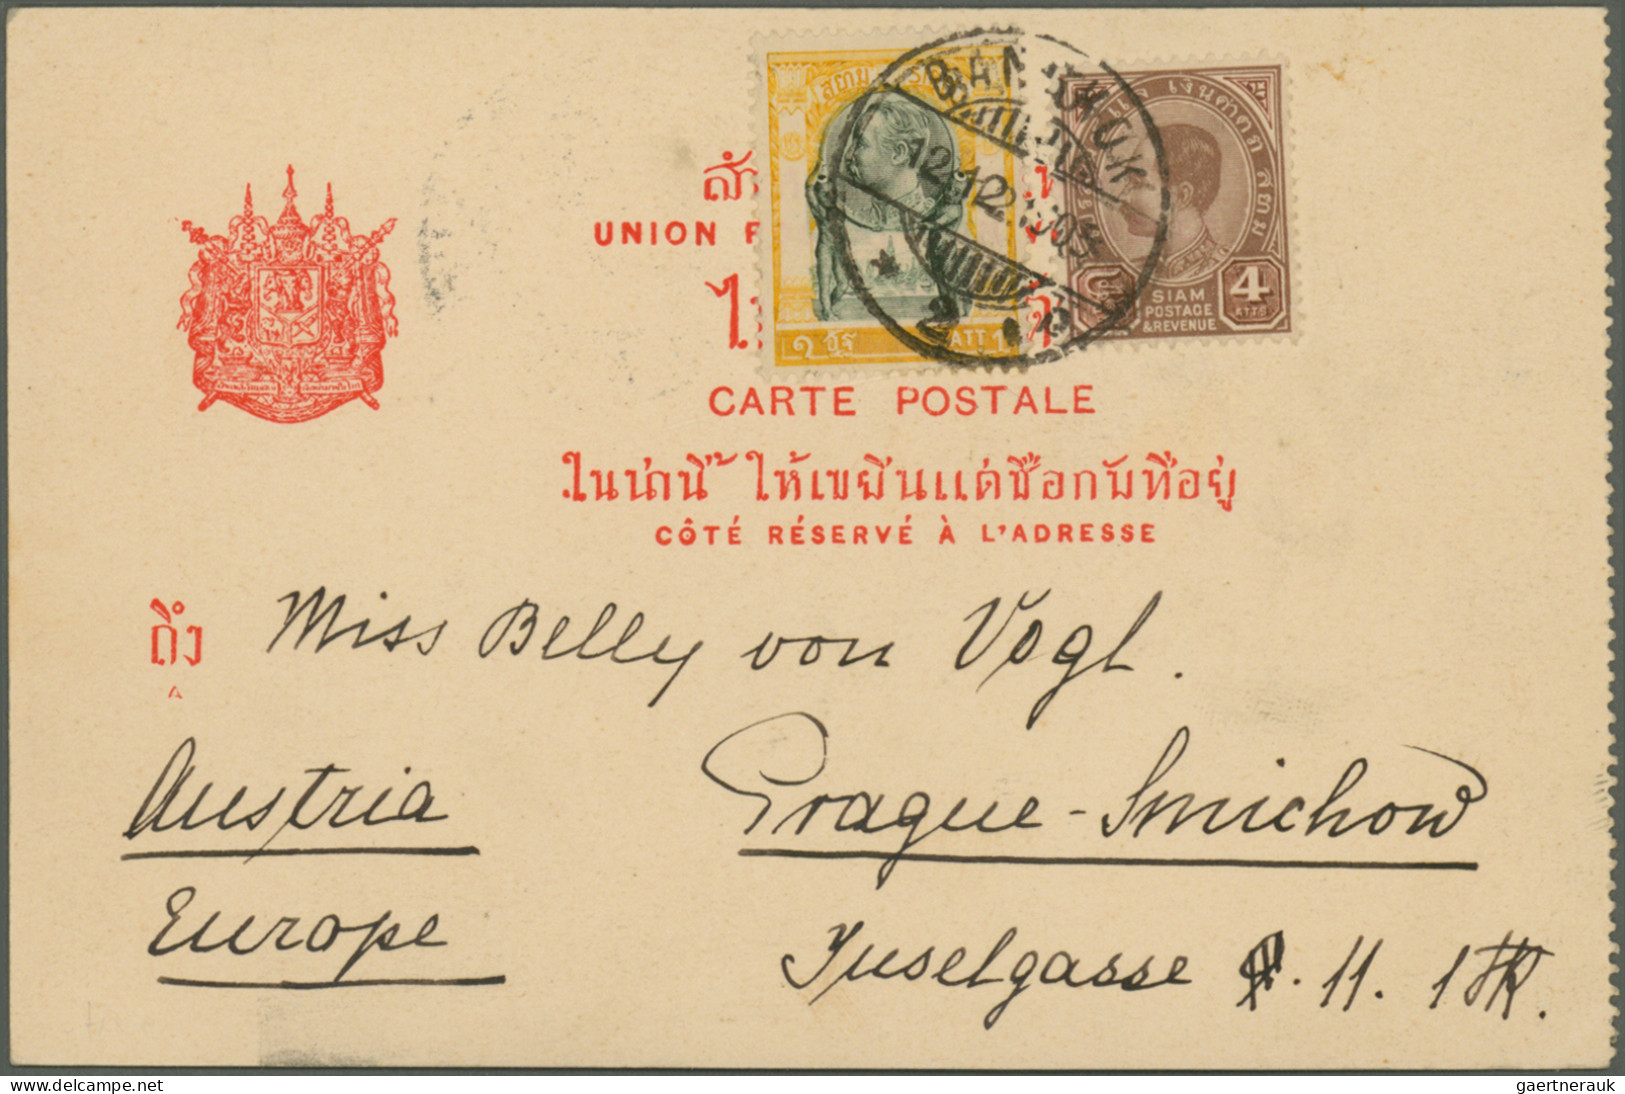 สยาม
BANGKOK
12.12.1905
2
๑ อัฐ
ATT 1
สยาม
SIAM
POSTAGE
& REVENUE
4
ATTS
UNION
CARTE POSTALE
ในน่านี้ ให้เขยีนแต่ชื่อกับที่อยู่
CÔTÉ RÉSERVÉ À L'ADRESSE
ถึง Miss Belly von Vogl.
A
Austria Prague-Smichow
Europe Inselgasse 11.
delcampe.net
gaertnerauk